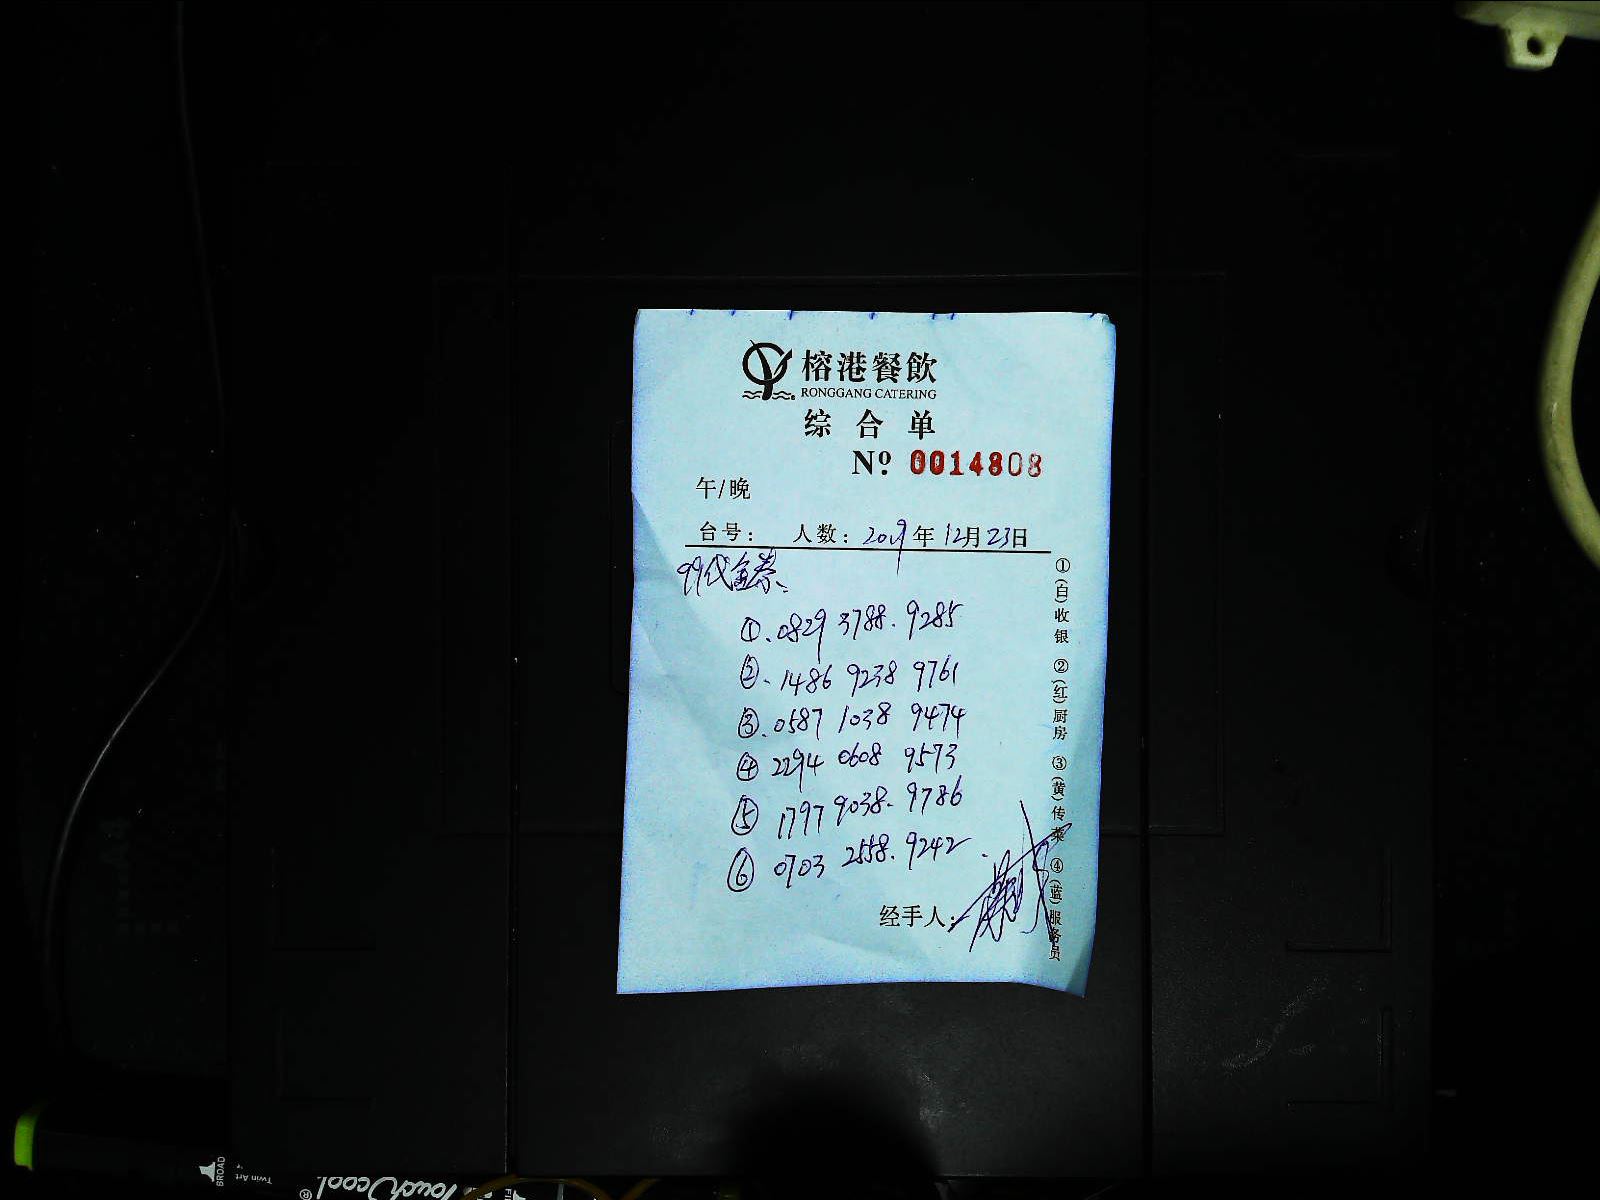 榕港餐飲
RONGGANG CATERING
综合单
Nº 0014808
午/晚
台号： 人数：2019年12月23日
99代金券、
①、0829 3788. 9285
②、1486 9238 9761
③、0587 1038 9474
④ 2294 0608 9573
⑤ 1797 9038. 9786
⑥ 0703 2558. 9242
经手人：
①(白)收银 ②(红)厨房 ③(黄)传菜 ④(蓝)服务员
BROAD
Twin Art
Touch cool ®